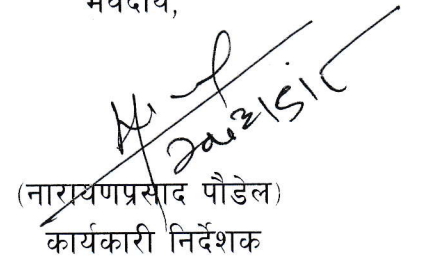 भवदीय,
(नारायणप्रसाद पौडेल)
कार्यकारी निर्देशक